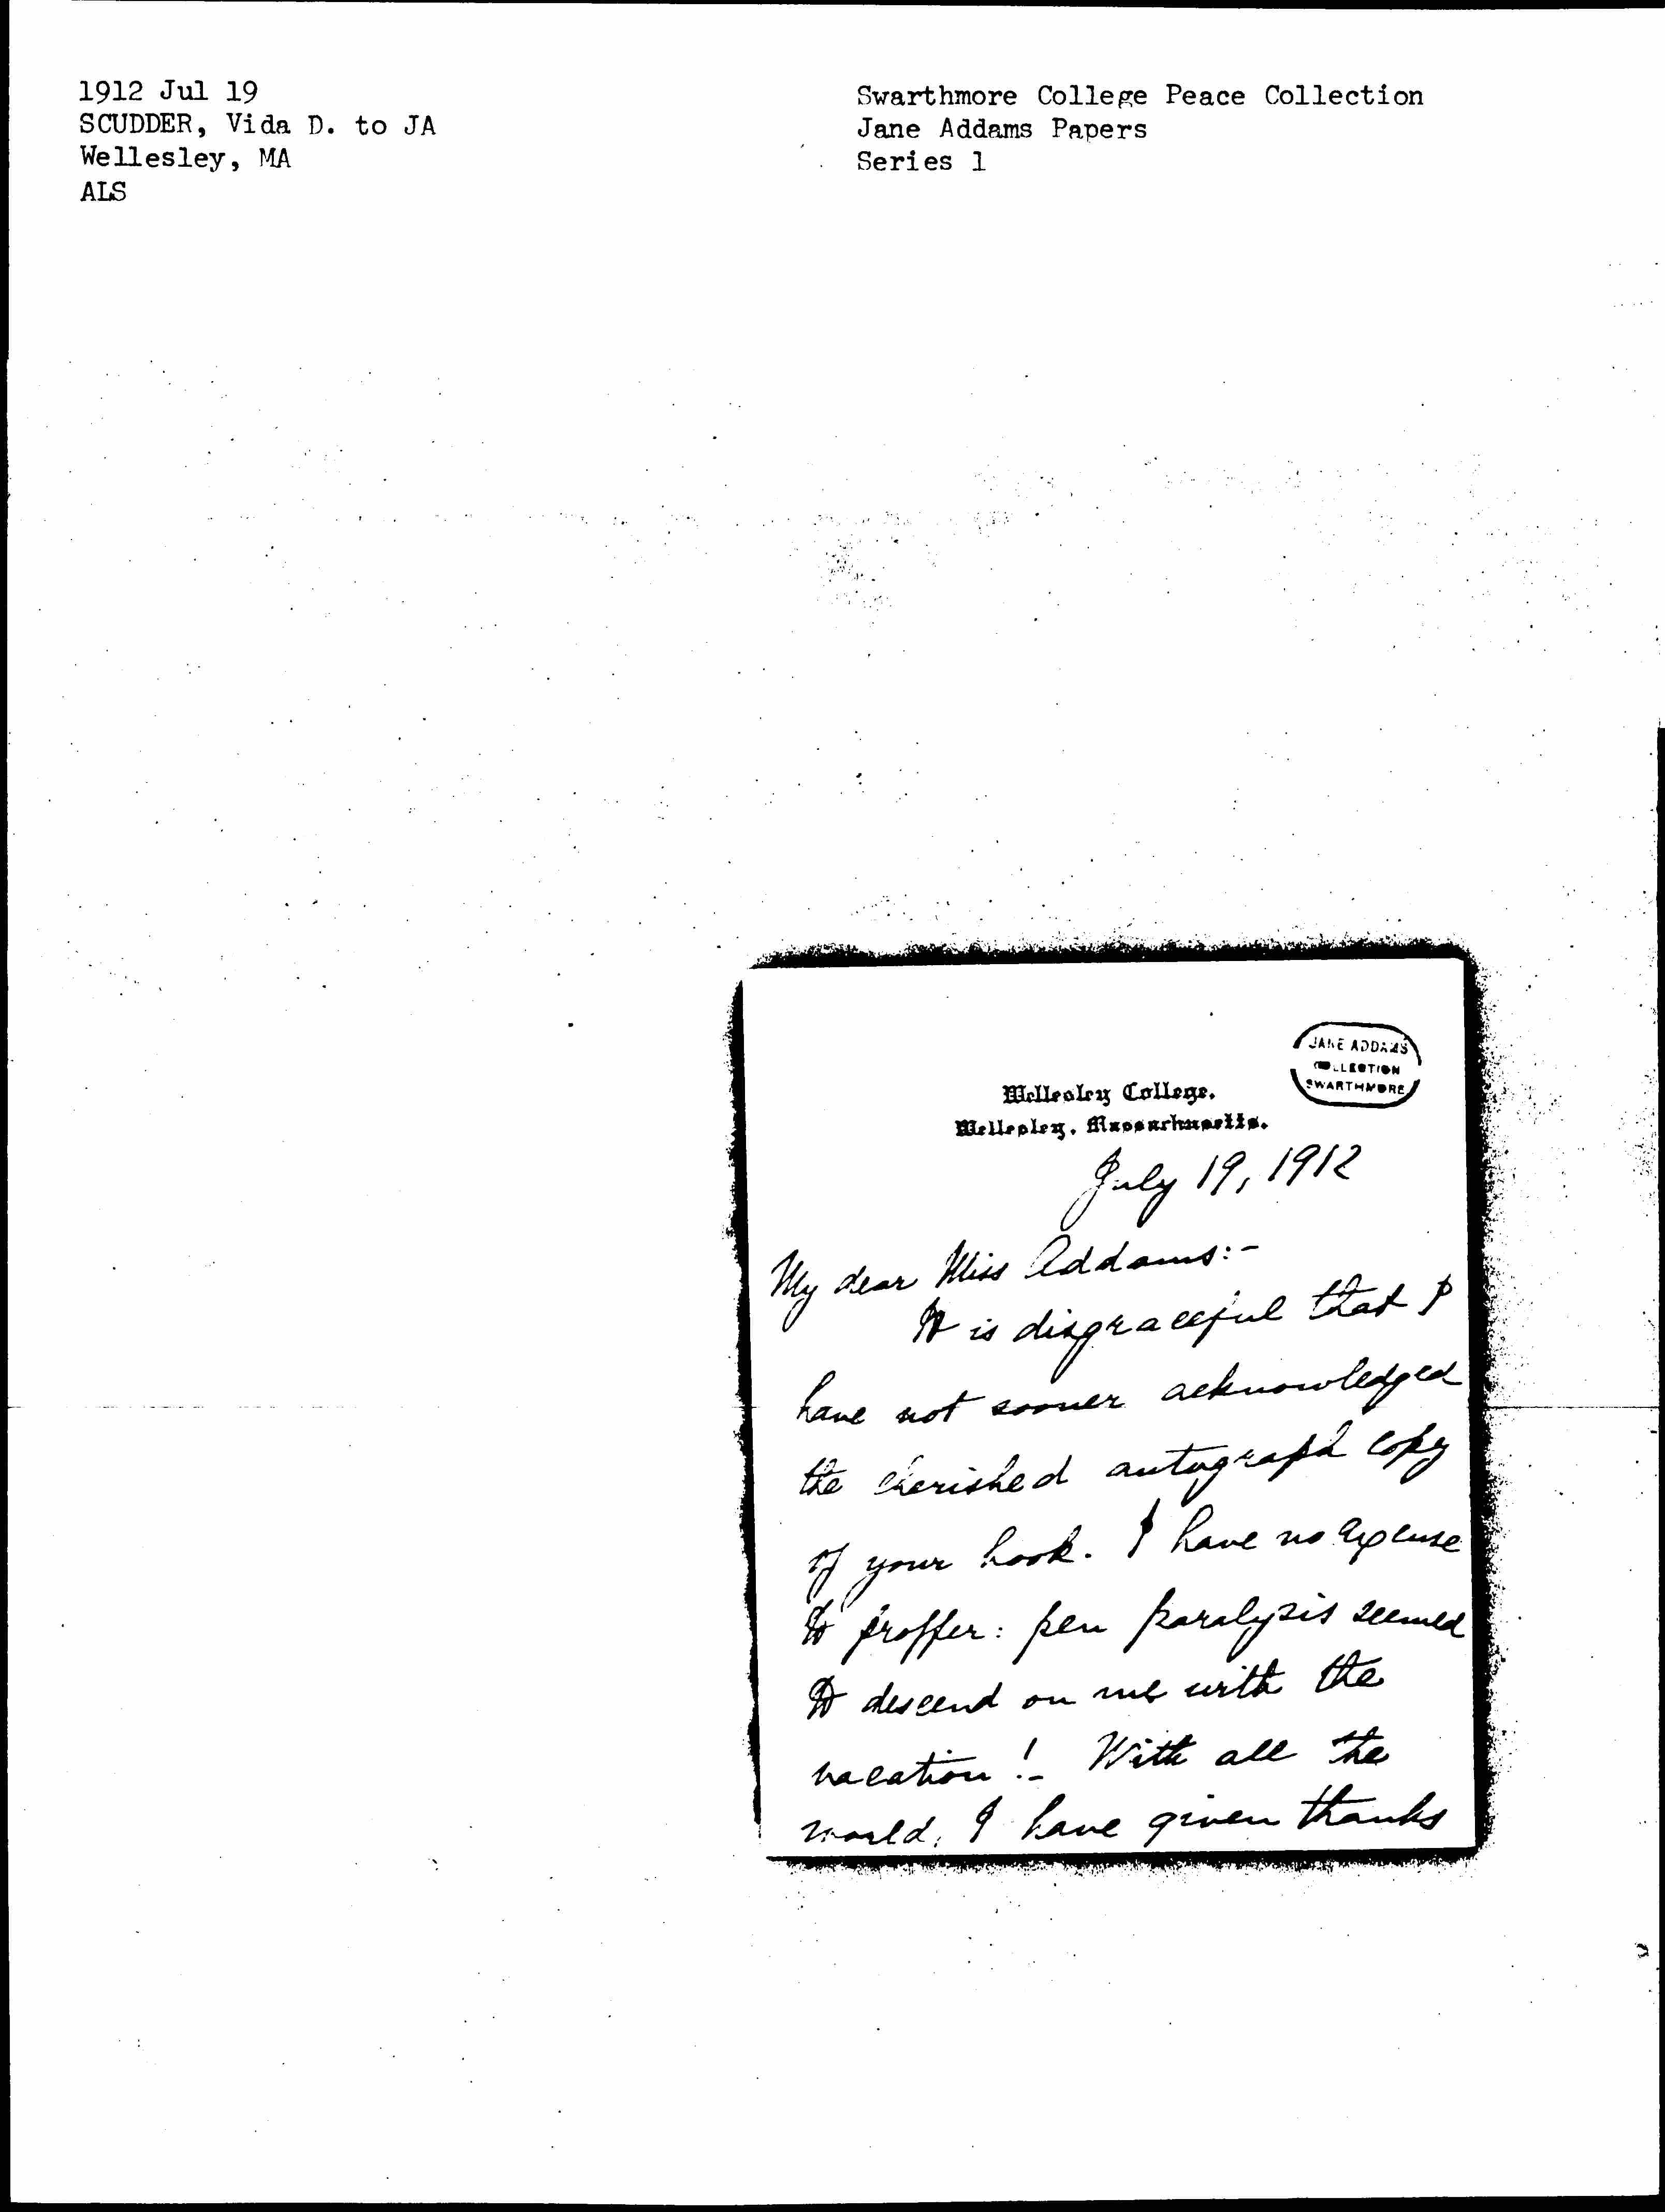 1912 Jul 19
SCUDDER, Vida D. to JA
Wellesley, MA
ALS
Swarthmore College Peace Collection
Jane Addams Papers
Series 1
JANE ADDAMS
COLLECTION
SWARTHMORE
Wellesley College.
Wellesley, Massachusetts.
July 19, 1912
My dear Miss Addams:-
It is disgraceful that I
have not sooner acknowledged
the cherished autograph copy
of your book. I have no excuse
to proffer: pen paralysis seemed
to descend on me with the
vacation!- With all the
world, I have given thanks